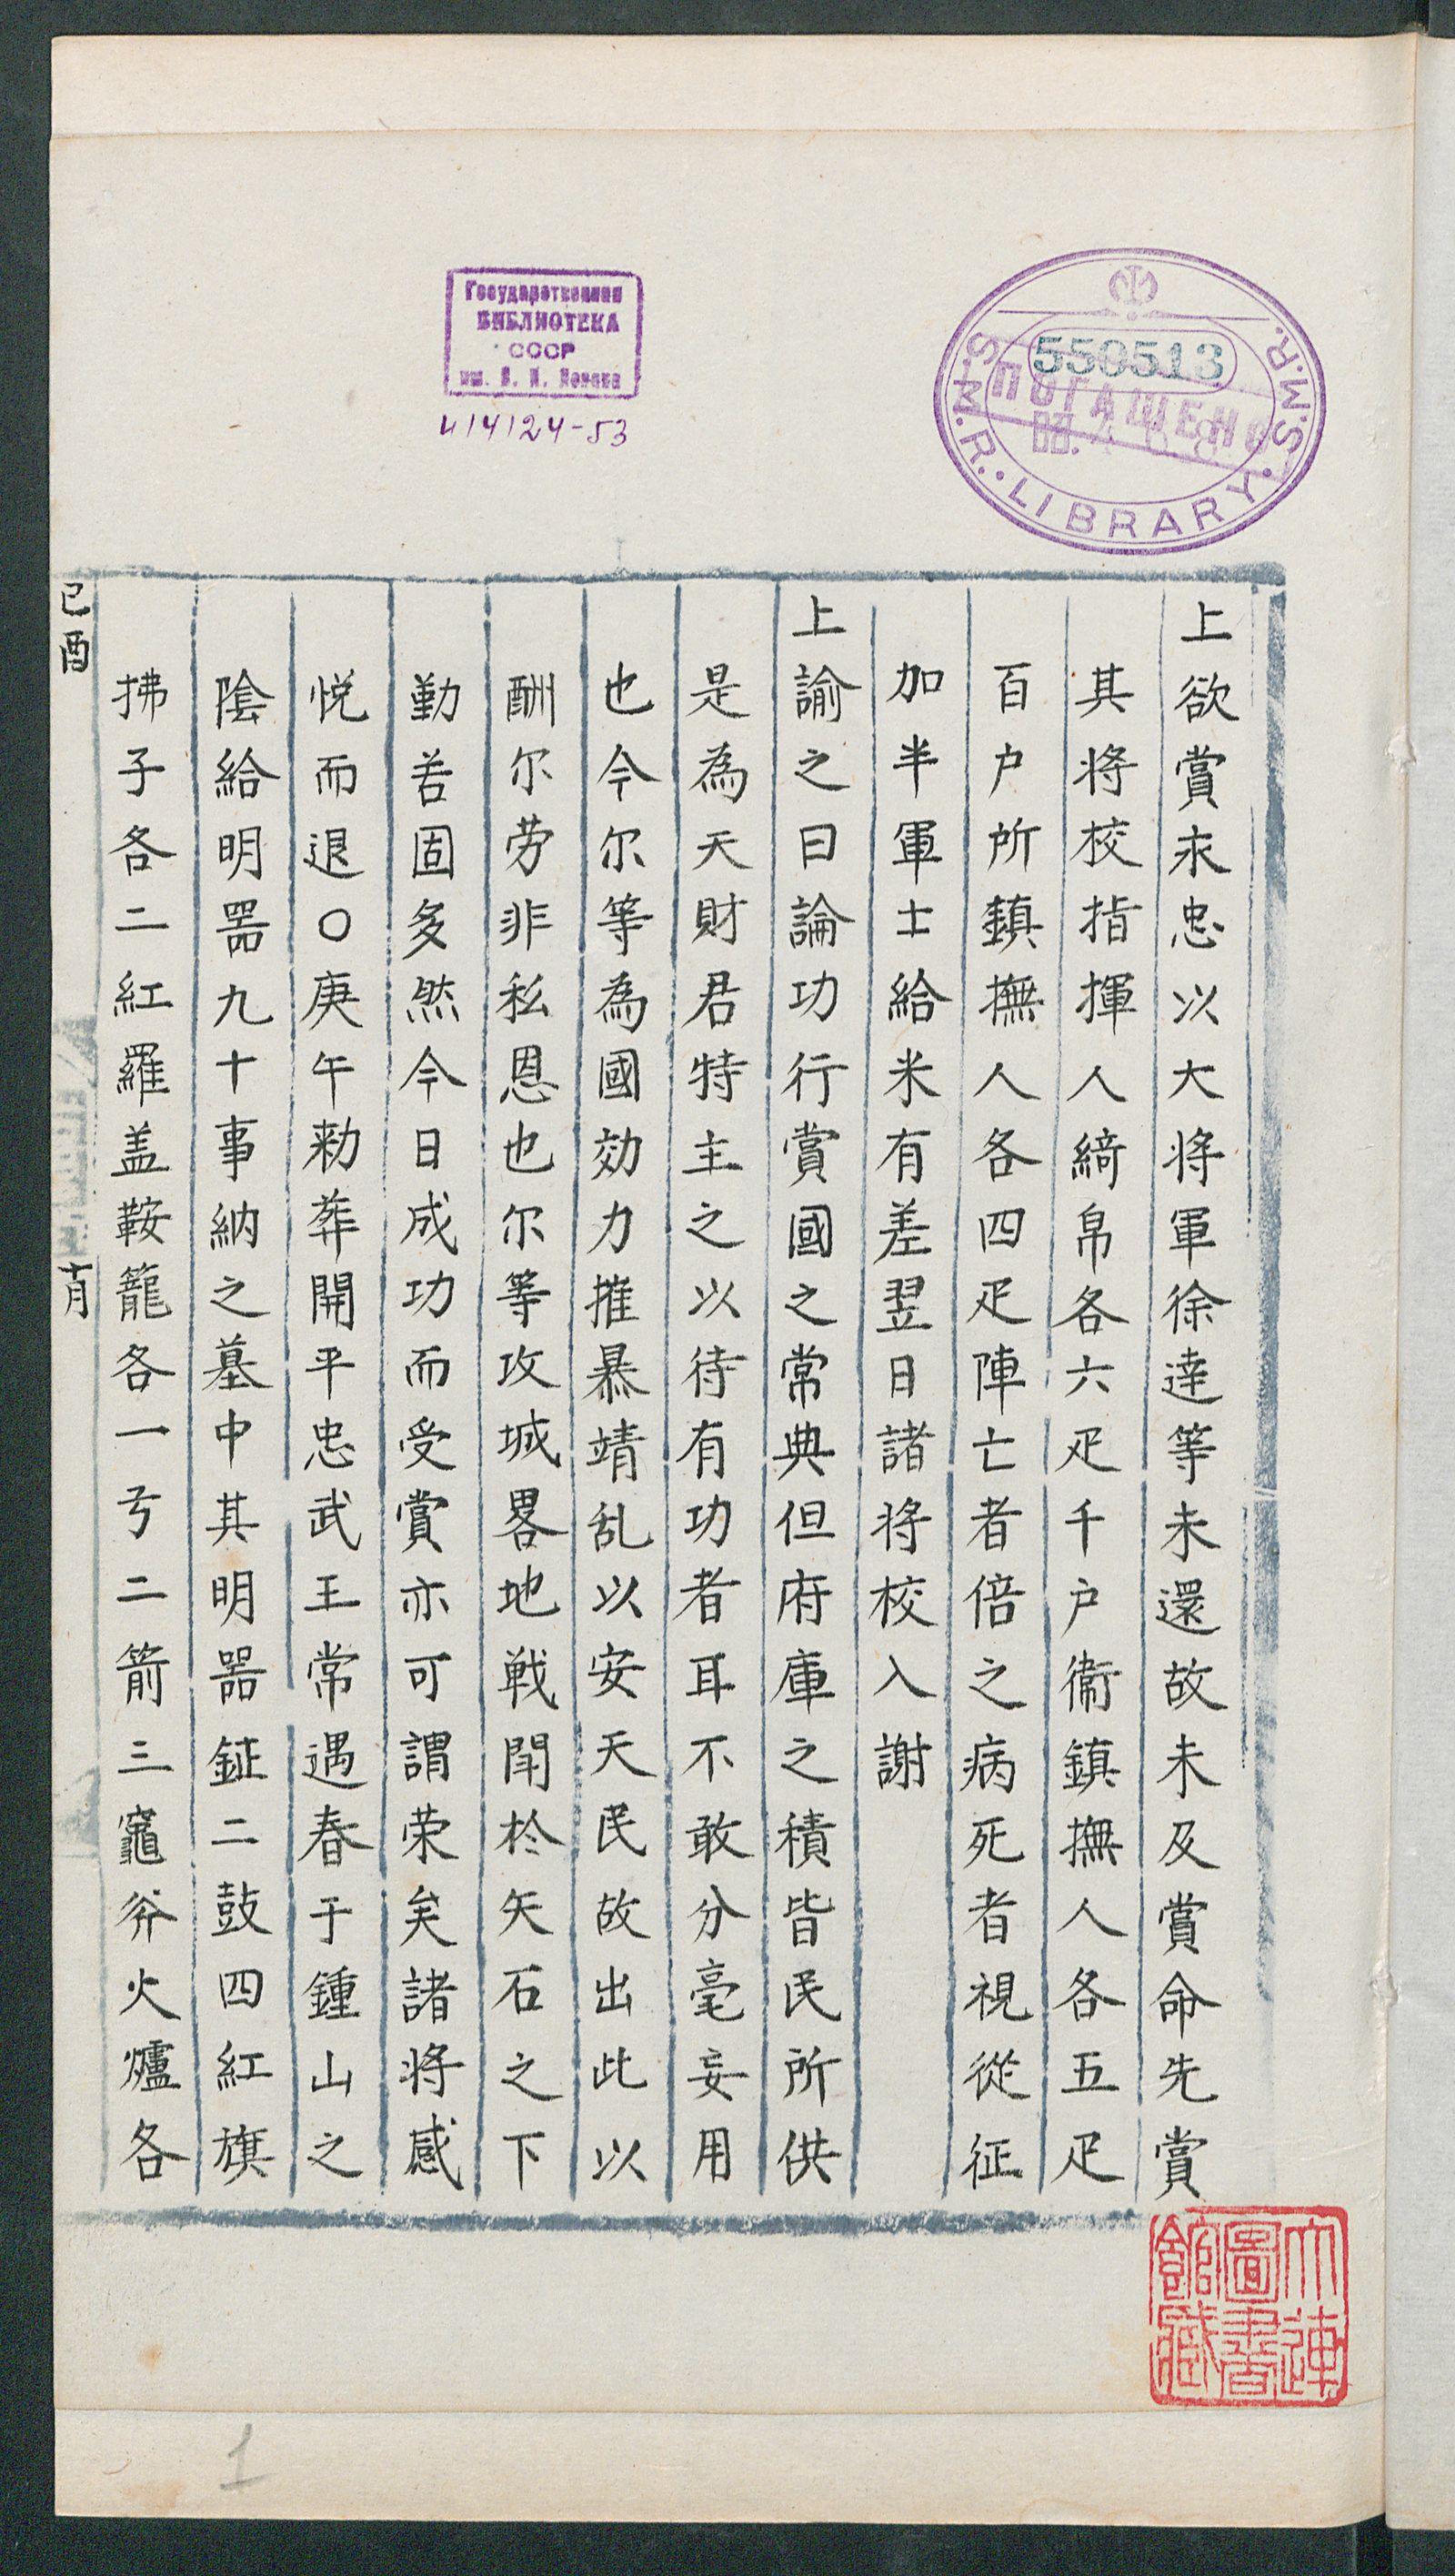 上欲賞永忠以大将軍徐逹等未還故未及賞命先賞
其将校指揮人綺帛各六疋千户衞鎮撫人各五疋
百户所鎮撫人各四疋陣亡者倍之病死者視從征
加半軍士給米有差翌日諸将校入謝
上諭之曰論功行賞國之常典但府庫之積皆民所供
是為天財君特主之以待有功者耳不敢分毫妄用
也今尔等為國効力摧暴靖乱以安天民故出此以
酬尔劳非私恩也尔等攻城畧地戦鬪於矢石之下
勤苦固多然今日成功而受賞亦可謂荣矣諸将感
悦而退〇庚午勑葬開平忠武王常遇春于鍾山之
隂給明器九十事納之墓中其明器鉦二鼓四紅旗
拂子各二紅羅盖鞍籠各一弓二箭三竈釡火爐各
己酉
十月
Государственная
БИБЛИОТЕКА
СССР
им. В. И. Ленина
414124-53
S.M.R. LIBRARY S.M.R.
559513
ПОГАШЕНО
大連
圖書
館藏
1